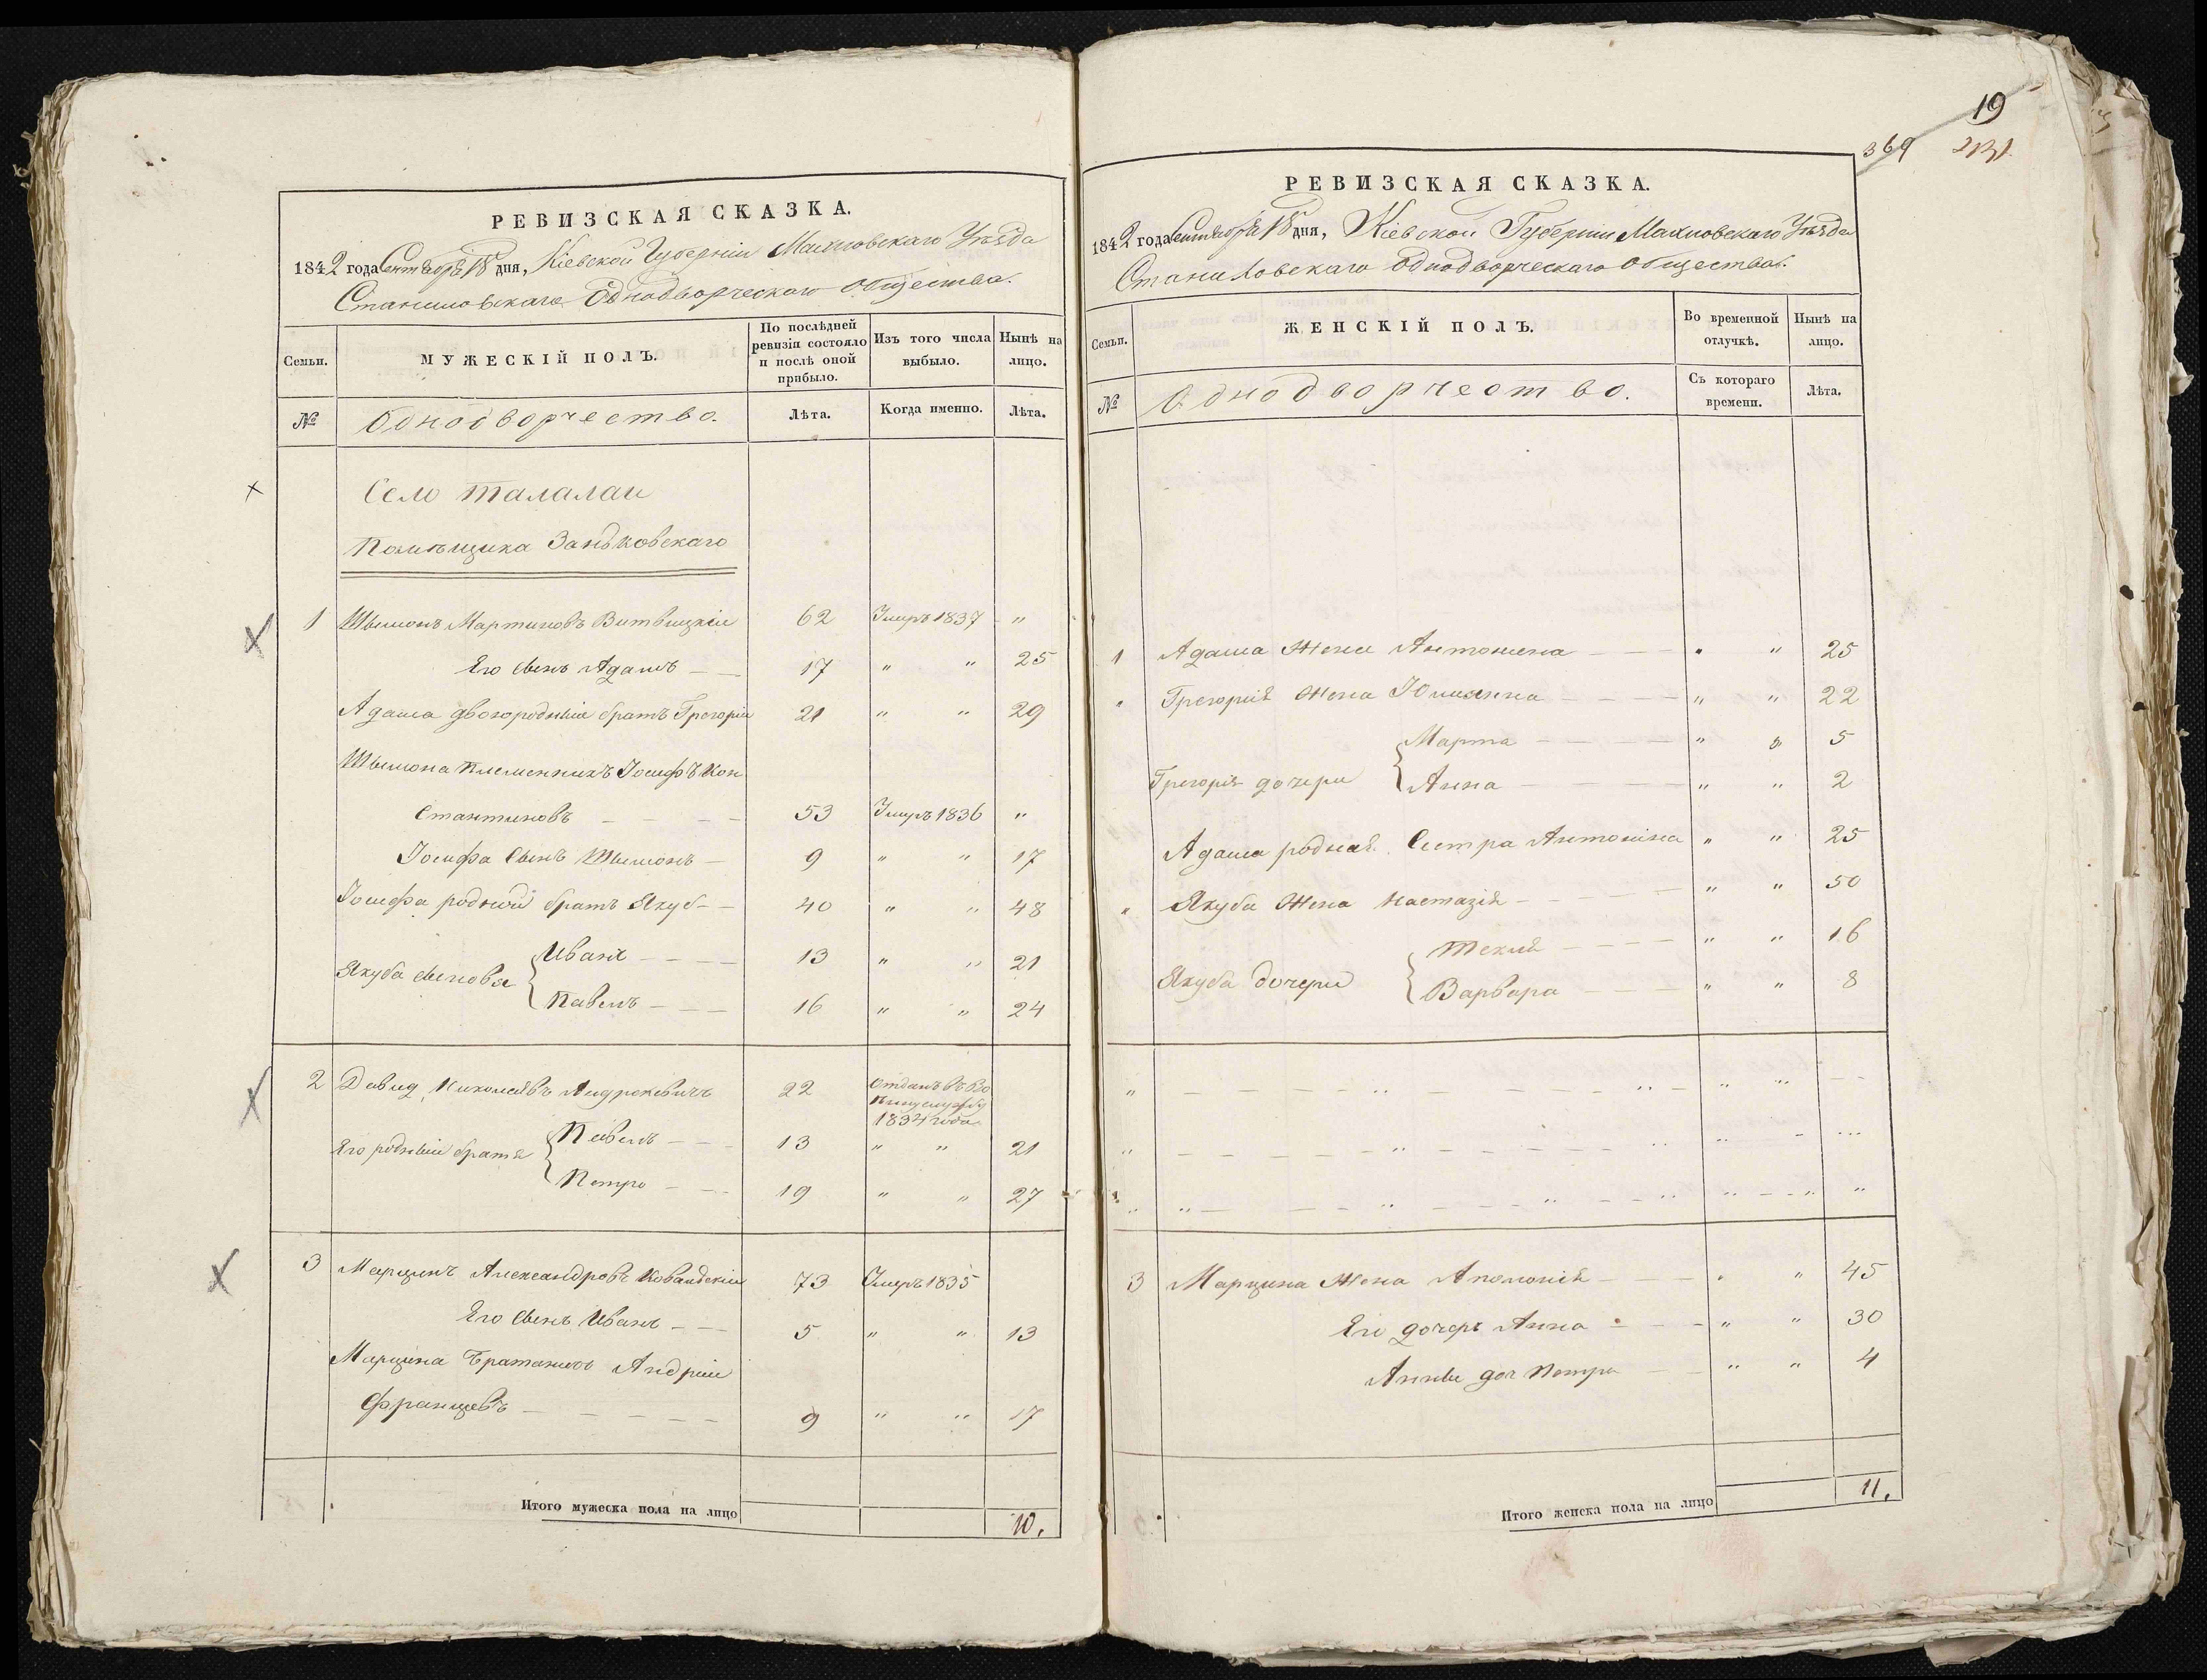 РЕВИЗСКАЯ СКАЗКА.
1842 года Сентября 18 дня, Кіевской Губерніи Махновскаго Уѣзда
Станиловскаго Однодворческаго Общества.
Семьи.
МУЖЕСКІЙ ПОЛЪ.
По послѣдней ревизіи состояло и послѣ оной прибыло.
Изъ того числа выбыло.
Нынѣ на лицо.
№
Однодворчество.
Лѣта.
Когда именно.
Лѣта.
Село Талалаи
Помѣщика Зандковскаго
1 Шымонъ Мартиновъ Витвицкіи 62 Умеръ 1837 "
Его Сынъ Адамъ 17 " " 25
Адама двоюродныи братъ Грегоріи 21 " " 29
Шымона племенникъ Іосифъ Кон
стантиновъ 53 Умеръ 1836 "
Іосифа Сынъ Шымонъ 9 " " 17
Іосифа родной братъ Якуб 40 " " 48
Якуба сыновья Иванъ 13 " " 21
Павелъ 16 " " 24
2 Давид Николаевъ 22 Отданъ въ Во
1834 года
Его родныи братья Павелъ 13 " " 21
Петро 19 " " 27
3 Марцинъ Александровъ 73 Умеръ 1835
Его Сынъ Иванъ 5 " " 13
Марцина Братаникъ Андріи
Францевъ 9 " " 17
Итого мужеска пола на лицо 10.
19
369 231
РЕВИЗСКАЯ СКАЗКА.
1842 года Сентября 18 дня, Кіевской Губерніи Махновскаго Уѣзда
Станиловскаго Однодворческаго Общества.
Семьи.
ЖЕНСКІЙ ПОЛЪ.
Во временной отлучкѣ.
Нынѣ на лицо.
№
Однодворчество.
Съ котораго времени.
Лѣта.
1 Адама Жена Антонина " " 25
" Грегорія Жена Юлианна " " 22
Марта " " 5
Грегорія дочери Анна " " 2
Адама родная Сестра Антоніна " " 25
" Якуба Жена Настазія " " 50
Текля " " 16
Якуба дочери Варвара " " 8
3 Марцина Жена Аполонія " " 45
Его дочерь Анна " " 30
Анны доч Петра " " 4
Итого женска пола на лицо 11.